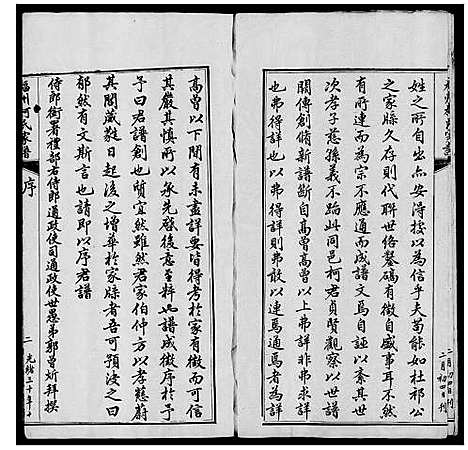 姓之所自出亦安得援以為信乎夫苟能如杜祁公
之家緜久存則代聯世絡鑿碻有徵自威事耳不然
有所連而為宗不應適而成譜文馬自誣以紊其世
次孝子慈孫義不蹈此同邑柯君貞賢觀察以世譜
闕傳創脩新譜斷自高曾高曾以上弗詳非弗求詳
也弗得詳也以弗得詳則弗敢以連為通為者為詳
高曾以下間有未盡詳要皆得考於家有徵而可信
其嚴其慎所以承先啟後意至粹也譜成徵序於予
予曰君譜創也質宜然雖然君家伯仲方以孝慈蔚
其閥威斁日起後之增華於家牒者吾可預決之曰
郁然有文斯言也請即以序君譜
侍郎銜署禮部右侍郎通政使司通政使世愚弟郭曾炘拜撰
柯氏家譜
序
二
光緒三十年
二月初四日刊